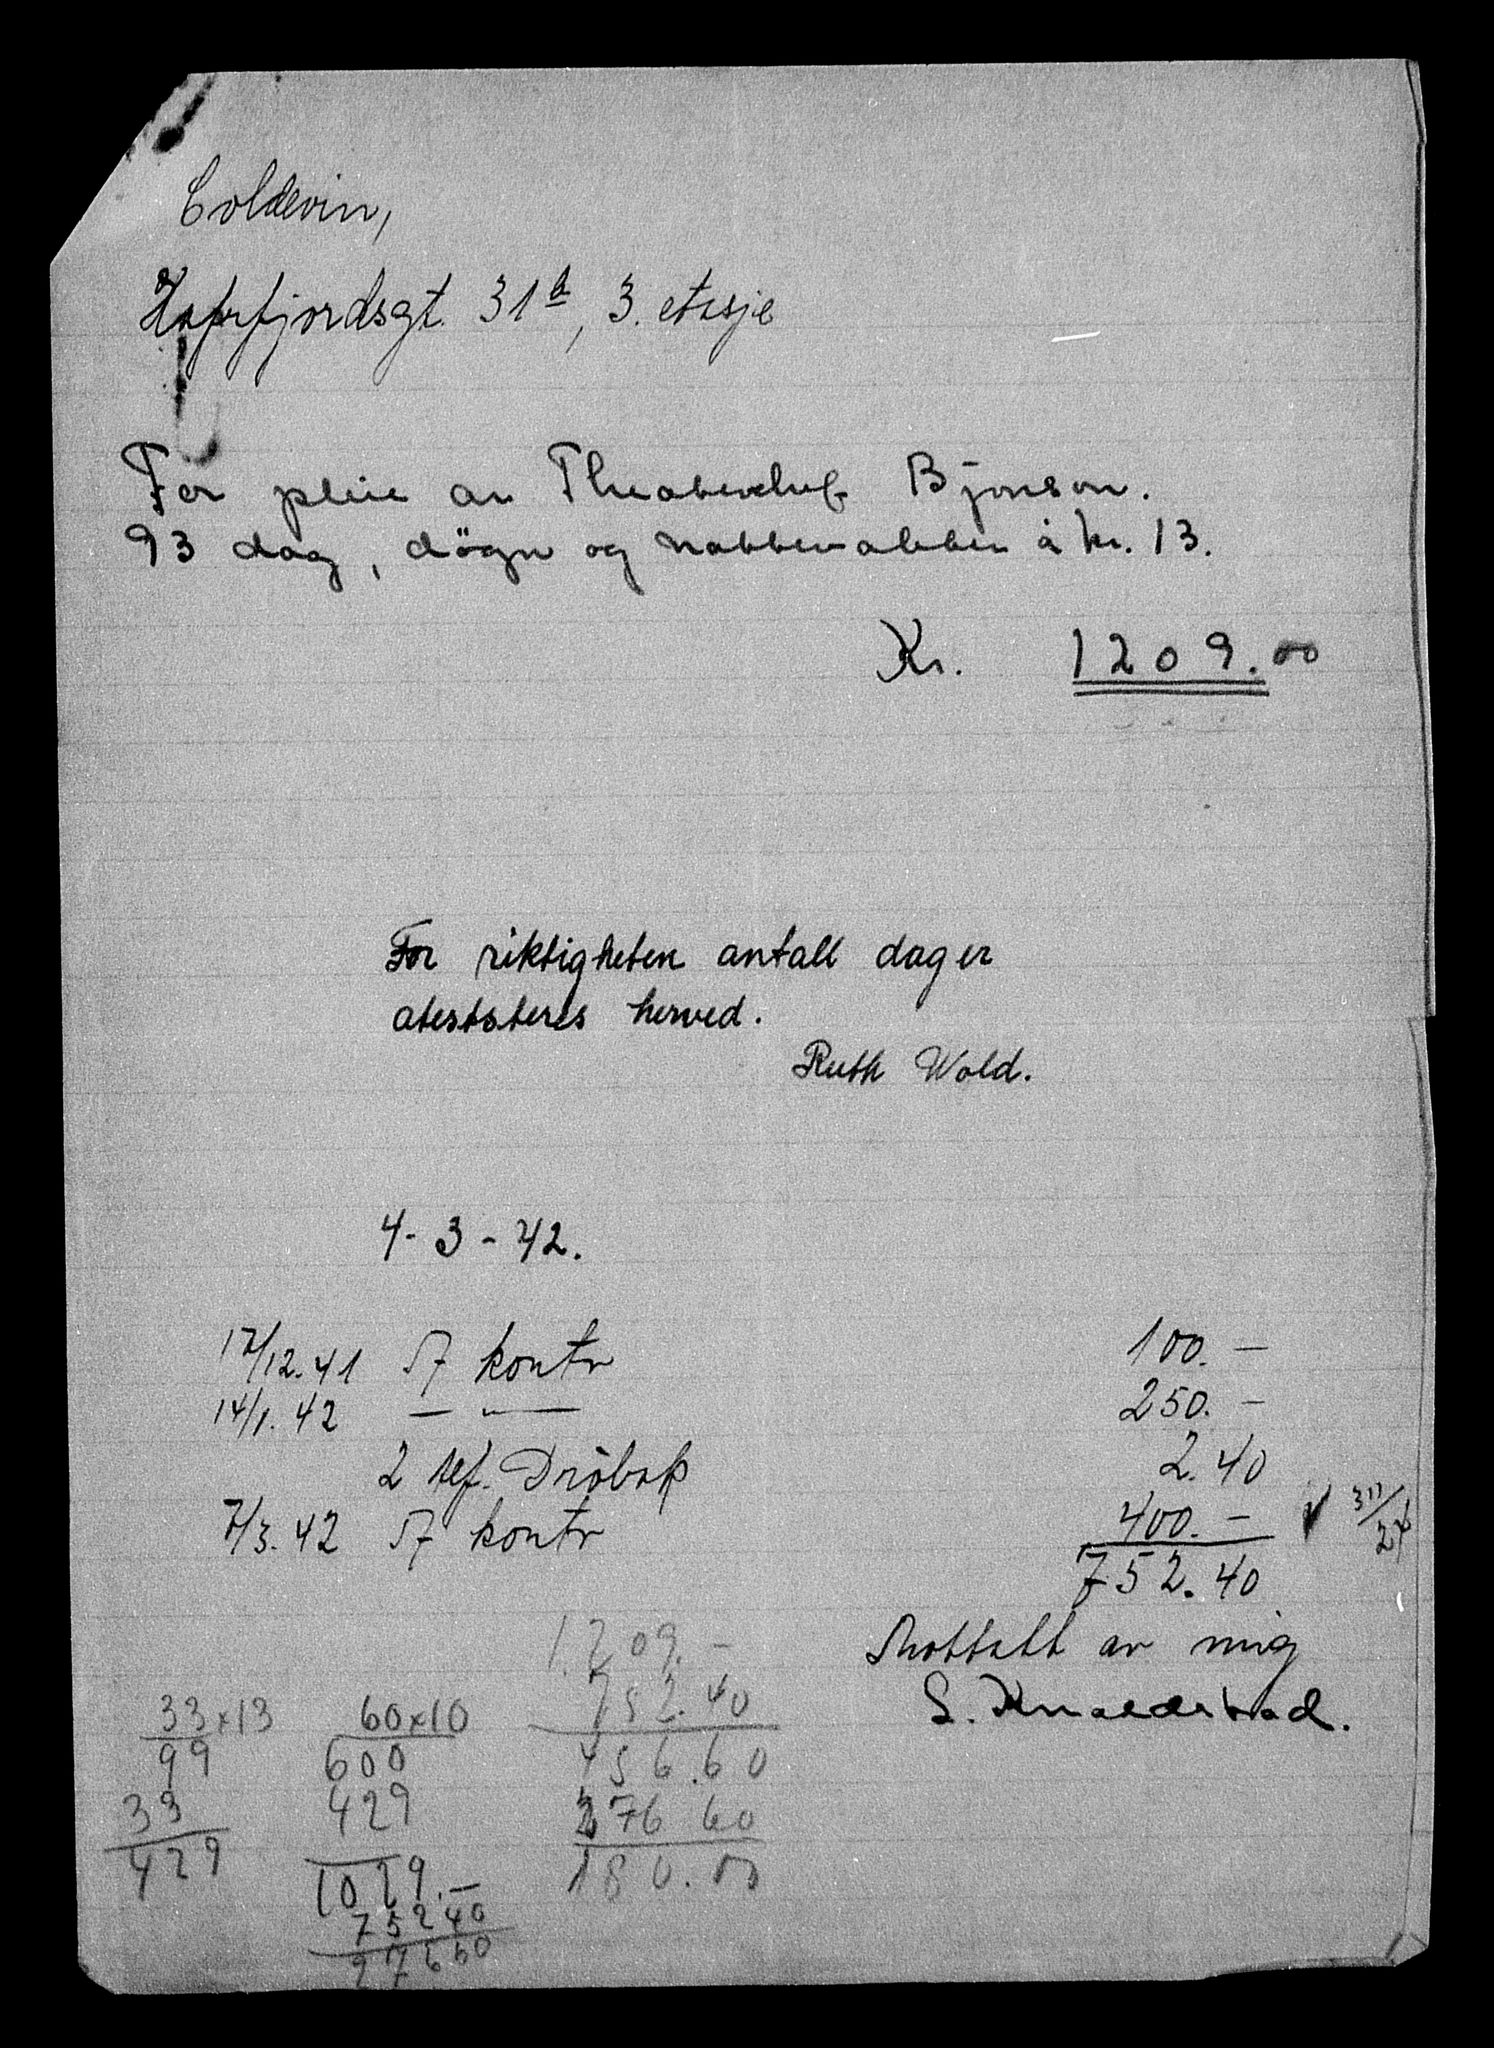 Coldevin,
Hafrsfjordsgt. 31b, 3. etasje
For pleie av Theaterchef Bjønson.
93 dag, døgn og nattevakter à kr. 13.
Kr. 1209.00
For riktigheten antall dager
atesteres herved.
Ruth Wold.
4-3-42.
17/12.41 kontr 100.-
14/1.42 — " — 250.-
2 tlf. Drøbak 2.40
7/3.42 kontr 400.-
752.40
Mottatt av mig
33x13
99
33
429
60x10
600
429
1029.-
752 40
276 60
1209.-
752.40
456.60
276 60
180.00